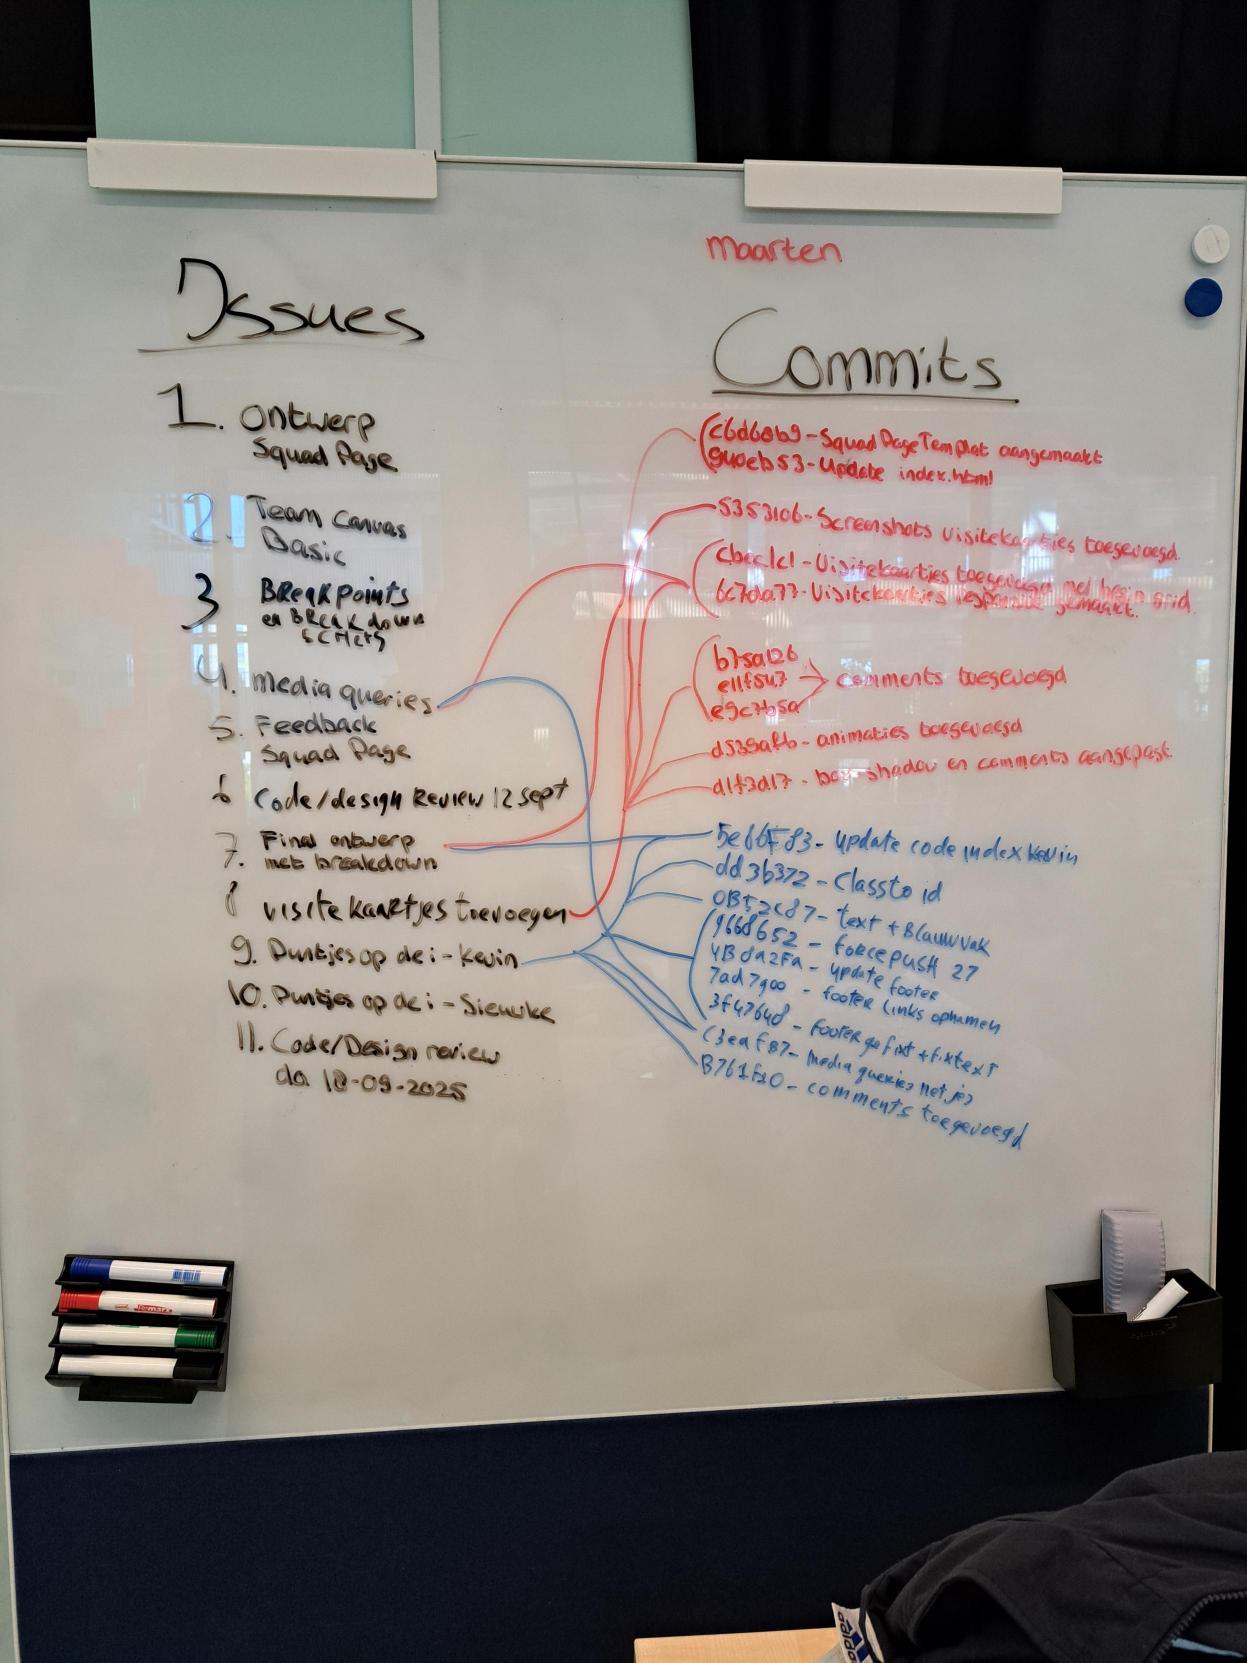 Issues
1. Ontwerp
Squad Page
2. Team Canvas
Basic
3 BReakPoints
en BReakdown
4. media queries
5. Feedback
Squad Page
6 Code/design Review 12 sept
7. Final ontwerp
met breakdown
8 visitekaartjes toevoegen
9. Puntjes op de i - Kevin
10. Puntjes op de i - Sieuwke
11. Code/Design review
do 18-09-2025
maarten
Commits
c6d60b9 - Squad Page Templat aangemaakt
- Update index.html
5353106 - Screenshots visitekaartjes toegevoegd.
- Visitekaartjes toegevoegd met begin grid
6c7da77 - Visitekaartjes responsive gemaakt.
b75a126
e11f547 comments toegevoegd
e9c7b5a
d539afb - animaties toegevoegd
d1f3d17 - box-shadow en comments aangepast
5e66F83 - update code index kevin
dd3b372 - Class to id
0B52c87 - text + Blauw vak
9668652 - force push 27
4B8a2Fa - update footer
7ad7900 - footer links ophamen
3f47648 - footer gefixt + fix text
C3eaf87 - media queries netjes
B761f10 - comments toegevoegd
adidas